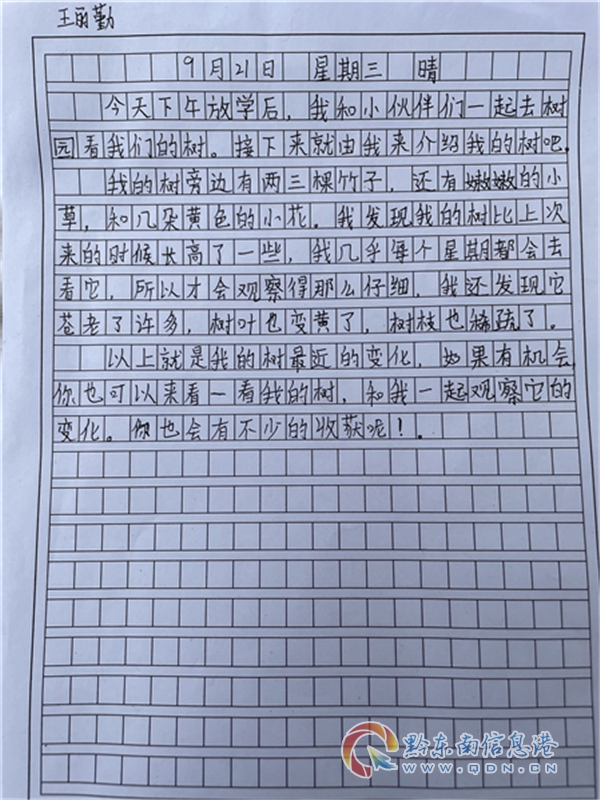 王丽勤
9月21日 星期三 晴
今天下午放学后，我和小伙伴们一起去树
园看我们的树。接下来就由我来介绍我的树吧。
我的树旁边有两三棵竹子，还有嫩嫩的小
草，和几朵黄色的小花。我发现我的树比上次
来的时候长高了一些，我几乎每个星期都会去
看它，所以才会观察得那么仔细，我还发现它
苍老了许多，树叶也变黄了，树枝也稀疏了。
以上就是我的树最近的变化，如果有机会，
你也可以来看一看我的树，和我一起观察它的
变化。你也会有不少的收获呢！。
黔东南信息港
WWW.QDN.CN